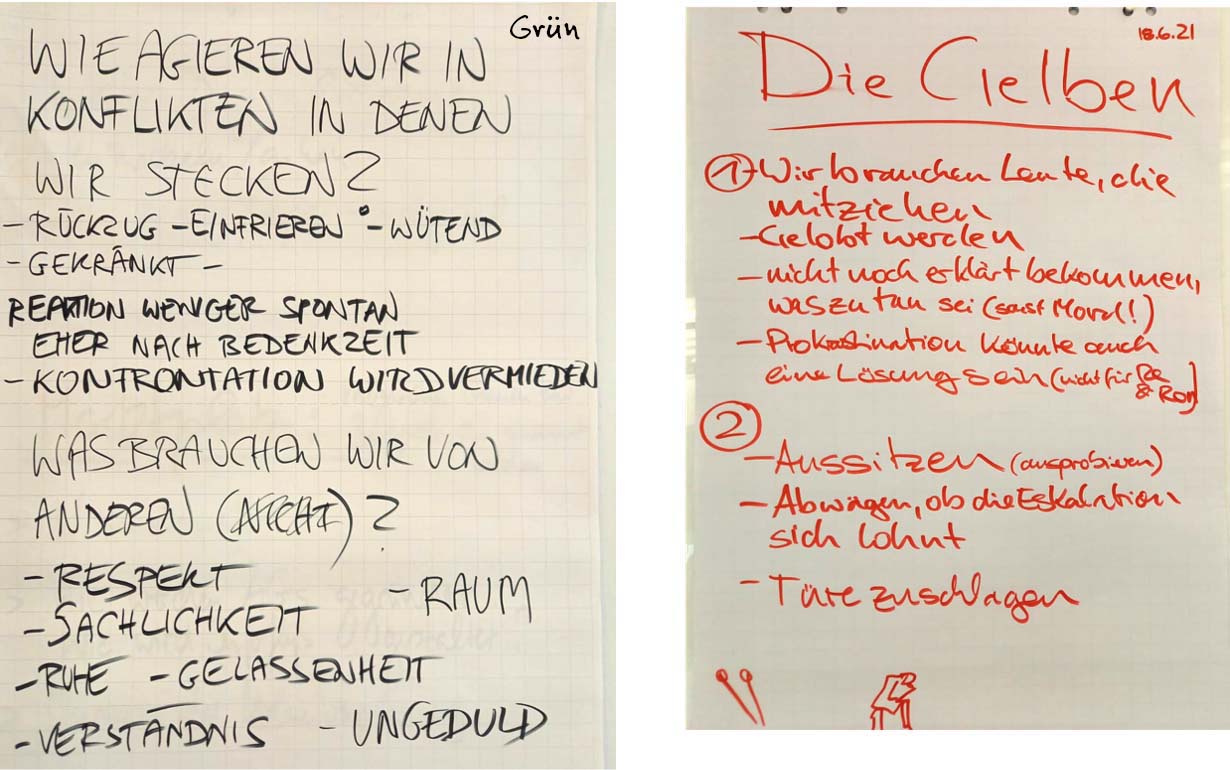 Grün
WIE AGIEREN WIR IN
KONFLIKTEN IN DENEN
WIR STECKEN?
- RÜCKZUG - EINFRIEREN - WÜTEND
- GEKRÄNKT -
REAKTION WENIGER SPONTAN
EHER NACH BEDENKZEIT
- KONFRONTATION WIRD VERMIEDEN
WAS BRAUCHEN WIR VON
ANDEREN ( ) ?
- RESPEKT
- RAUM
- SACHLICHKEIT
- RUHE - GELASSENHEIT
- VERSTÄNDNIS - UNGEDULD
18.6.21
Die Gelben
1 - Wir brauchen Leute, die
mitziehen
- Gelobt werden
- nicht noch erklärt bekommen,
was zu tun sei (sonst Mord!)
- Prokrastination könnte auch
eine Lösung sein (nicht für
& Ron)
2
- Aussitzen (ausprobieren)
- Abwägen, ob die Eskalation
sich lohnt
- Türe zuschlagen